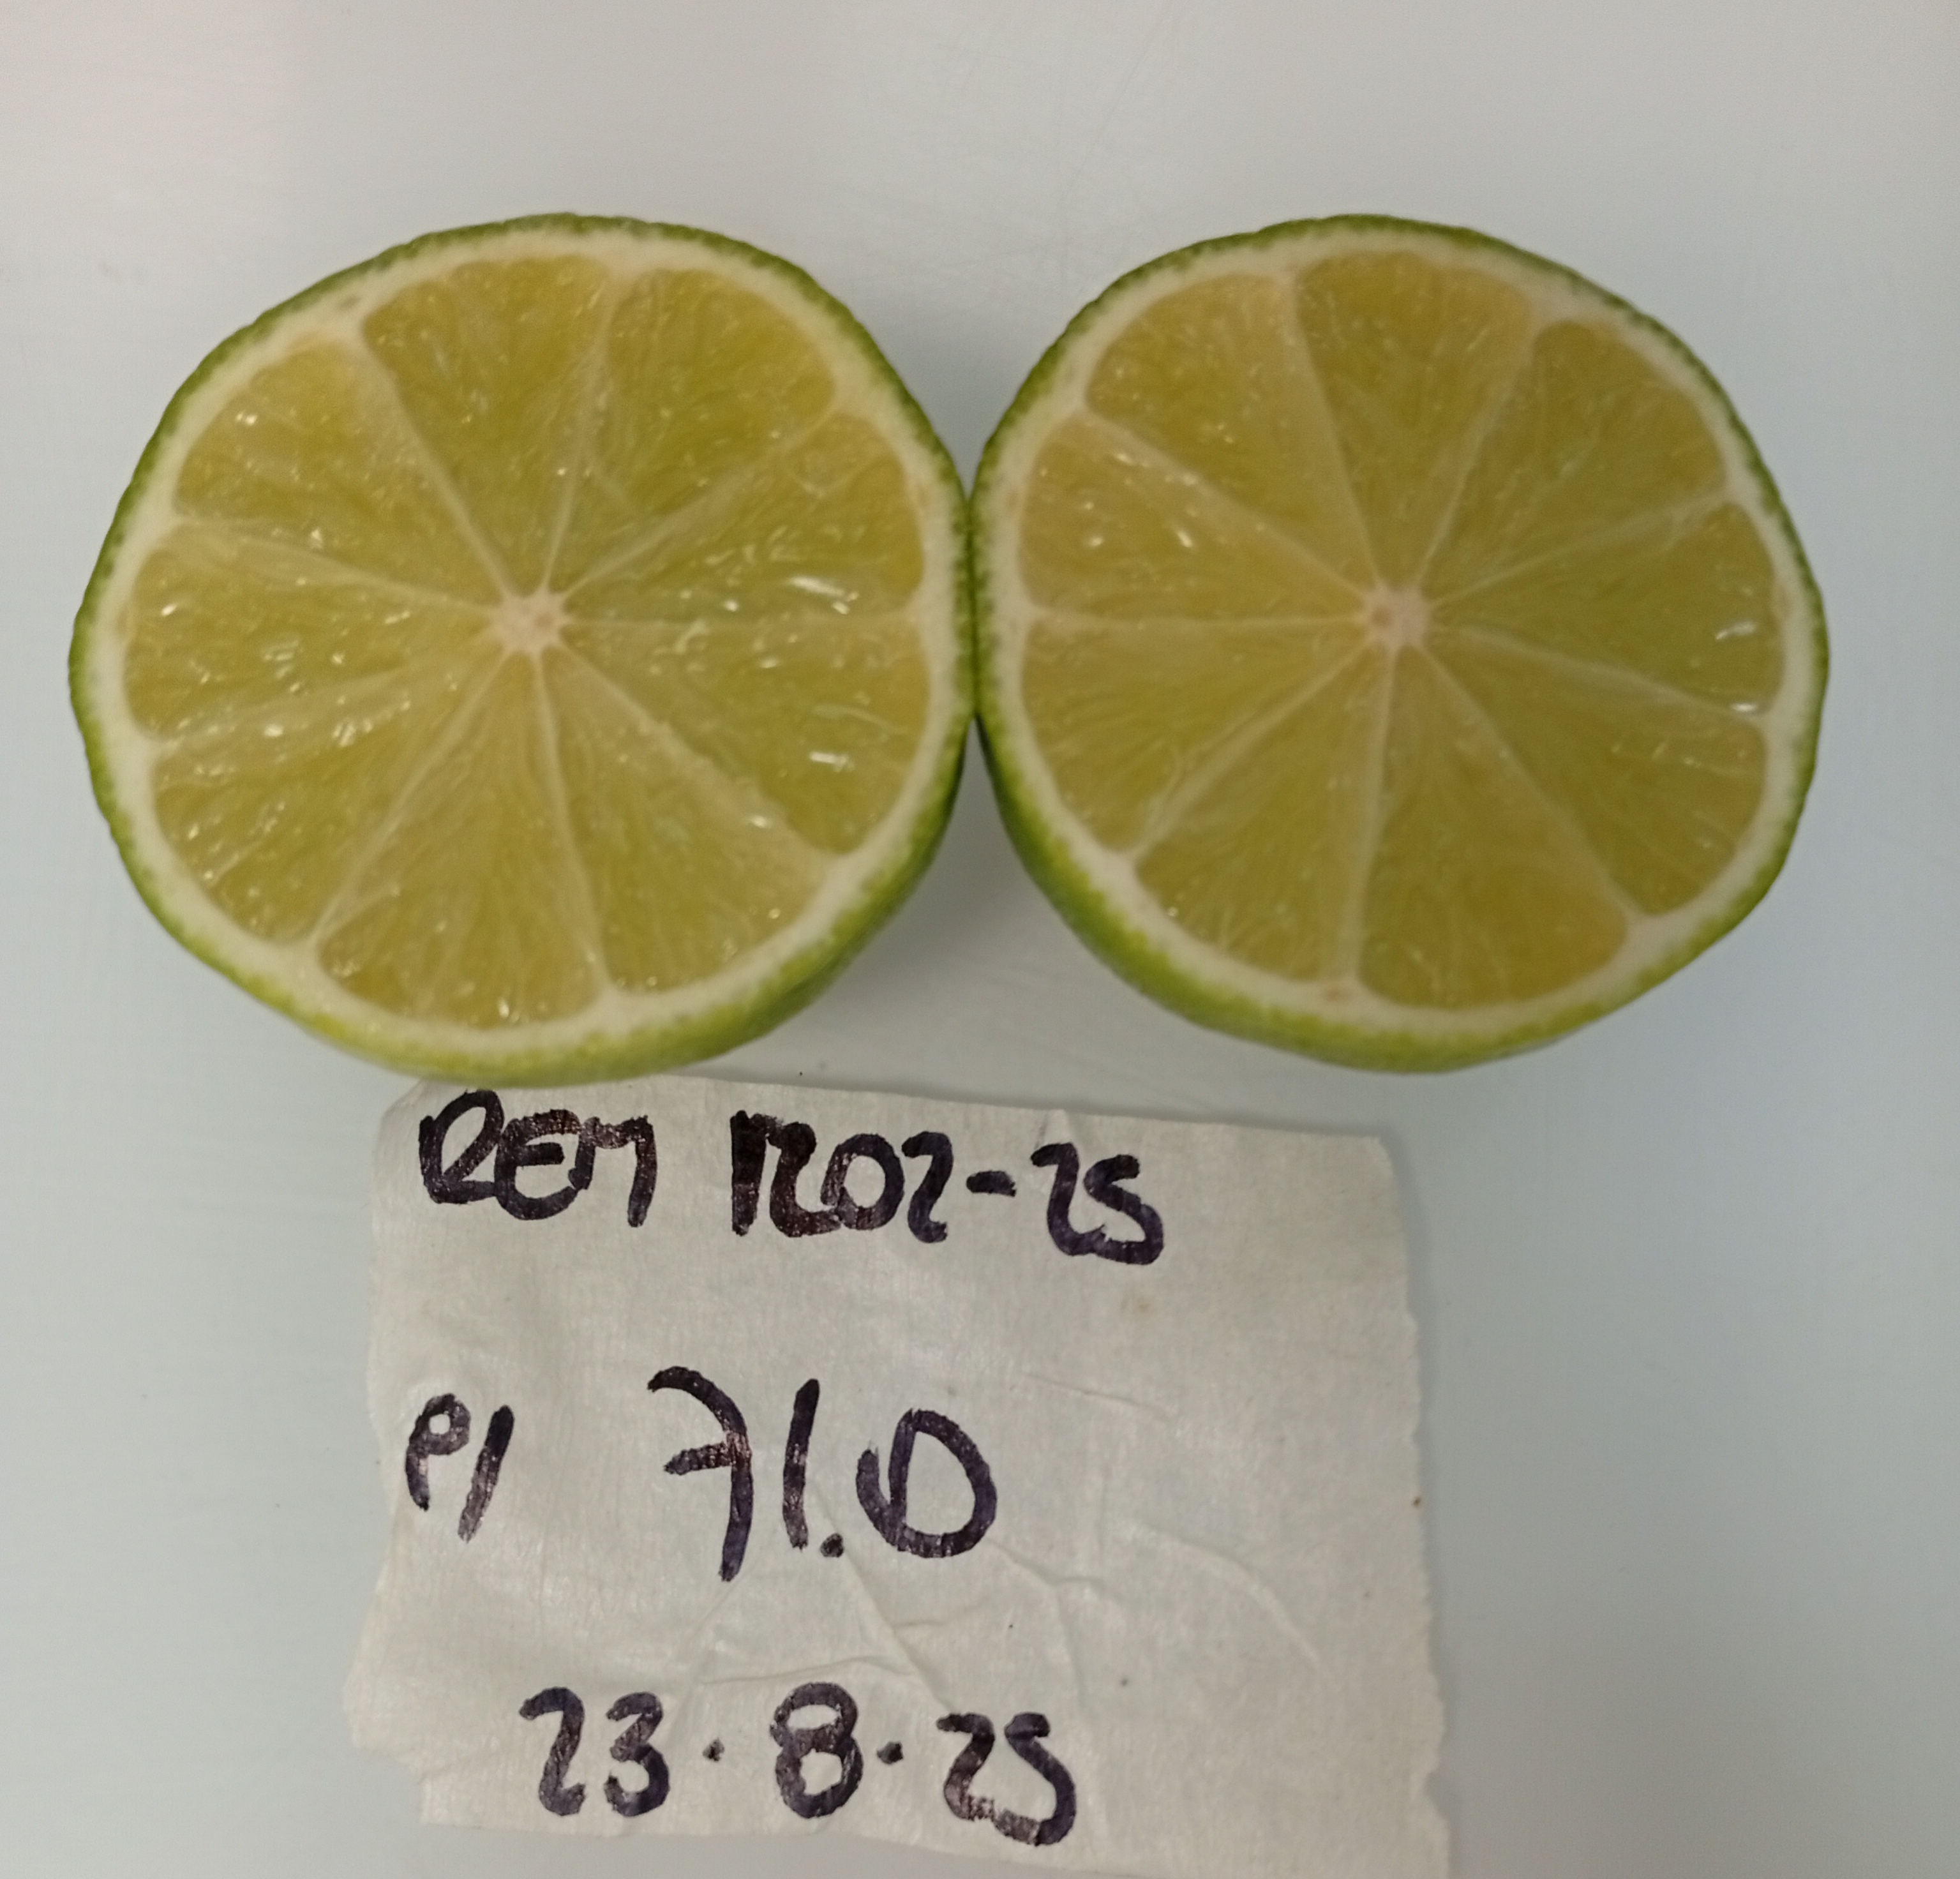 REM 1202-25
P1 71.0
23.8.25